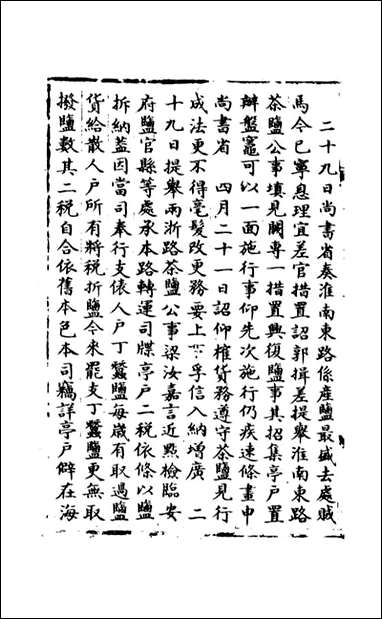 二十九日尚書省奏淮南東路係産鹽最盛去處賊
馬今已寧息理宜差官措置詔郭揖差提舉淮南東路
茶鹽公事填見闕專一措置興復鹽事其招集亭戶置
辦盤竈可以一面施行事仰先次施行仍疾速條畫申
尚書省　四月二十一日詔仰榷貨務遵守茶鹽見行
成法更不得毫髮改更務要上下孚信入納增廣　二
十九日提舉兩浙路茶鹽公事梁汝嘉言近點檢臨安
府鹽官縣等處承本路轉運司牒亭戶二稅依條以鹽
拆納蓋因當司奉行支俵人戶丁蠶鹽每歲有取過鹽
貨給散人戶所有將稅折鹽今來罷支丁蠶鹽更無取
撥鹽數其二稅自合依舊本色本司竊詳亭戶僻在海